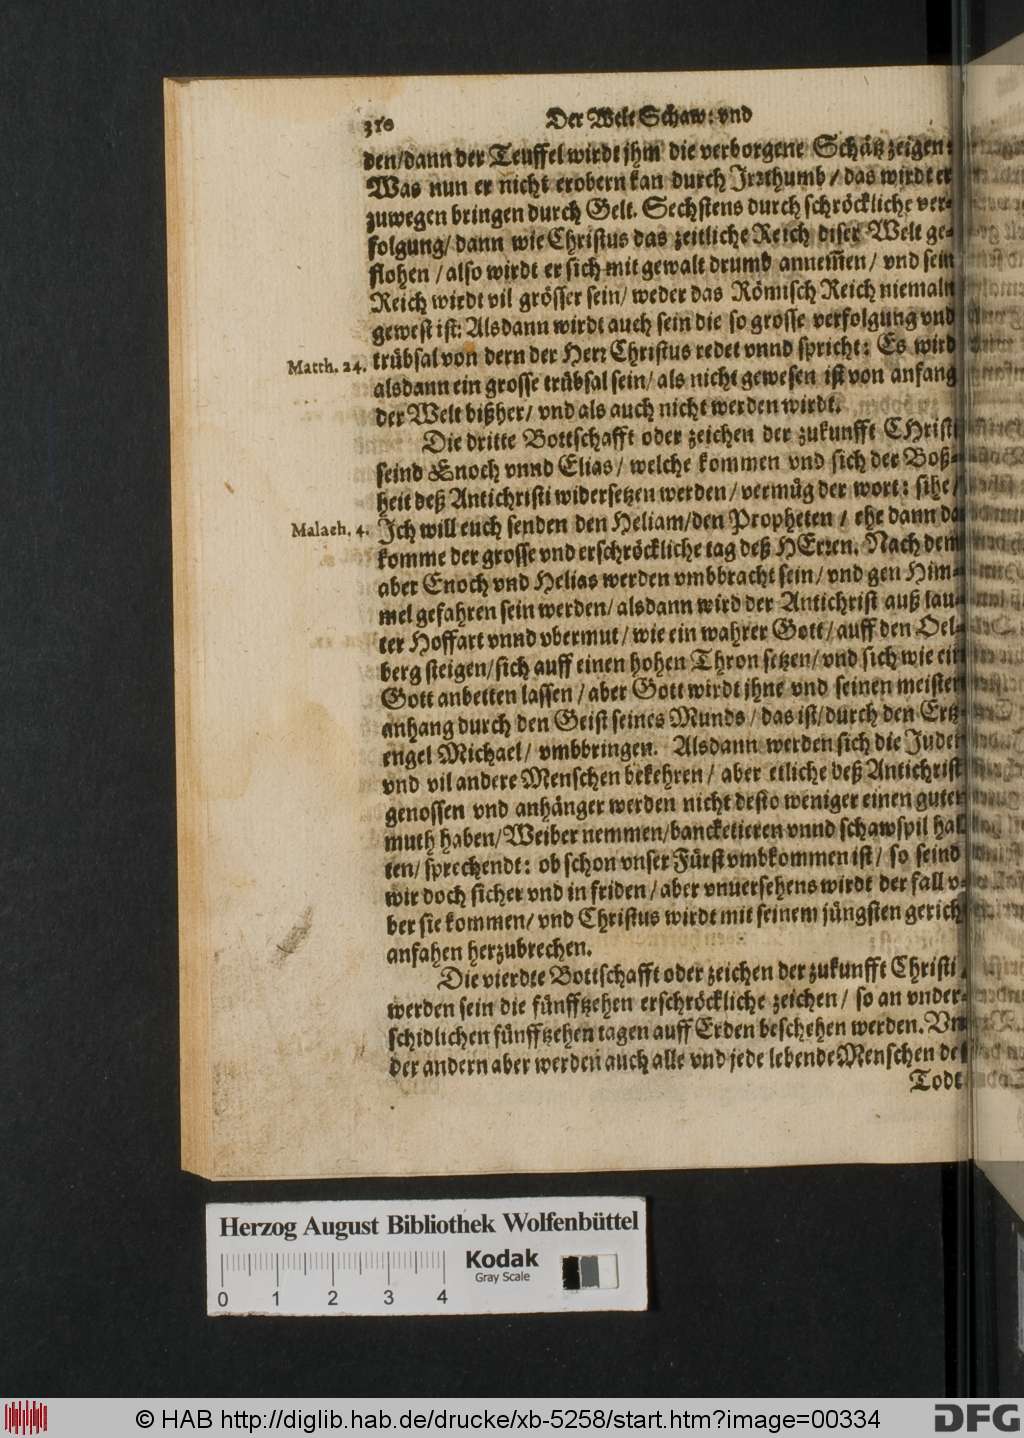 310 Der Welt Schaw: vnd
den/dann der Teuffel wirdt jhm die verborgene Schätz zeigen:
Was nun er nicht erobern kan durch Jrrthumb/das wirdt er
zuwegen bringen durch Gelt. Sechstens durch schröckliche ver-
folgung/dann wie Christus das zeitliche Reich diser Welt ge-
flohen/also wirdt er sich mit gewalt drumb annem̃en/vnd sein
Reich wirdt vil grösser sein/weder das Römisch Reich niemaln
gewest ist: Alsdann wirdt auch sein die so grosse verfolgung vnd
Matth. 24. trübsal von dern der Herr Christus redet vnnd spricht: Es wird
alsdann ein grosse trübsal sein/als nicht gewesen ist von anfang
der Welt bißher/vnd als auch nicht werden wirdt.
Die dritte Bottschafft oder zeichen der zukunfft CHristi
seind Enoch vnnd Elias/welche kommen vnd sich der Boß-
heit deß Antichristi widersetzen werden/vermüg der wort: sihe/
Malach. 4. Jch will euch senden den Heliam/den Propheten/ehe dann da
komme der grosse vnd erschröckliche tag deß HErren. Nach dem
aber Enoch vnd Helias werden vmbbracht sein/vnd gen Him-
mel gefahren sein werden/alsdann wird der Antichrist auß lau-
ter Hoffart vnnd vbermut/wie ein wahrer Gott/auff den Oel-
berg steigen/sich auff einen hohen Thron setzen/vnd sich wie ein
Gott anbetten lassen/aber Gott wirdt jhne vnd seinen meisten
anhang durch den Geist seines Munds/das ist/durch den Ertz-
engel Michael/vmbbringen. Alsdann werden sich die Juden
vnd vil andere Menschen bekehren/aber etliche deß Antichrist
genossen vnd anhänger werden nicht desto weniger einen guten
muth haben/Weiber nemmen/bancketieren vnnd schawspil hal
ten/sprechendt: ob schon vnser Fürst vmbkommen ist/so seind
wir doch sicher vnd in friden/aber vnuersehens wirdt der fall v-
ber sie kommen/vnd Christus wirdt mit seinem jüngsten gericht
anfahen herzubrechen.
Die vierdte Bottschafft oder zeichen der zukunfft Christi
werden sein die fünfftzehen erschröckliche zeichen/so an vnder-
schidlichen fünfftzehen tagen auff Erden beschehen werden. Vn
der andern aber werden auch alle vnd jede lebende Menschen de
Todt
Herzog August Bibliothek Wolfenbüttel
Kodak
Gray Scale
0 1 2 3 4
© HAB http://diglib.hab.de/drucke/xb-5258/start.htm?image=00334
DFG